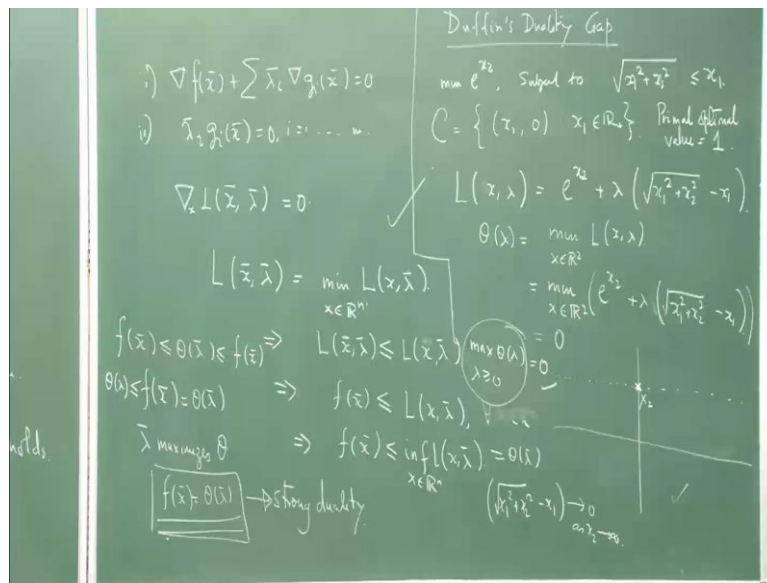 nolds.
i) ∇f(x̄) + ∑ λ̄ᵢ ∇gᵢ(x̄) = 0
ii) λ̄ᵢ gᵢ(x̄) = 0, i = 1 .... m.
∇ₓ L(x̄, λ̄) = 0.
L(x̄, λ̄) = min L(x, λ̄).
x ∈ ℝⁿ
f(x̄) ≤ θ(λ̄) ≤ f(x̄) ⇒ L(x̄, λ̄) ≤ L(x, λ̄)
θ(λ) ≤ f(x̄) = θ(λ̄) ⇒ f(x̄) ≤ L(x, λ̄),
λ̄ maximizes θ ⇒ f(x̄) ≤ inf L(x, λ̄) = θ(λ̄)
x ∈ ℝⁿ
f(x̄) = θ(λ̄) → strong duality
Duffin's Duality Gap
min e^{x₂}, Subject to √(x₁² + x₂²) ≤ x₁.
C = { (x₁, 0) x₁ ∈ ℝ₊ }. Primal optimal
value = 1.
L(x, λ) = e^{x₂} + λ (√(x₁² + x₂²) - x₁).
θ(λ) = min L(x, λ)
x ∈ ℝ²
= min (e^{x₂} + λ (√(x₁² + x₂²) - x₁))
x ∈ ℝ²
= 0
max θ(λ) = 0
λ ≥ 0
x₂
(√(x₁² + x₂²) - x₁) → 0